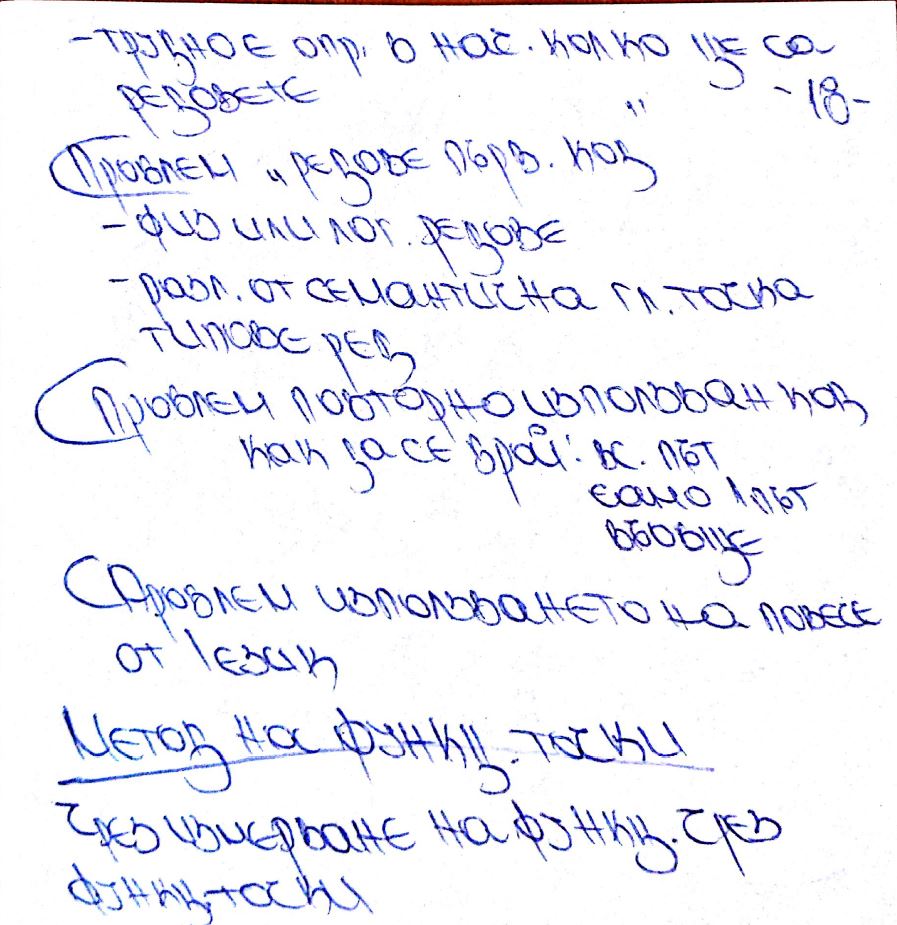 - трудно е опр. в нач. колко ще са
редовете
- 18 -
Проблем „редове първ. код"
- физ или лог. редове
- разл. от семантична гл. точка
типове ред
Проблем повторно използван код
как да се брои: вс. път
само 1 път
въобще
Проблем използването на повече
от 1 език
Метод на функц. точки
Чрез измерване на функц. чрез
функц. точки